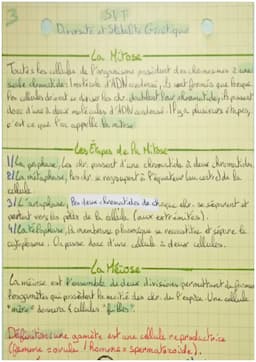 3
SVT
Diversité et Stabilité Génétique
La Mitose
Toutes les cellules de l'organisme possèdent des chromosomes à une
seule chromatide : 1 molécule d'ADN condensé, ils sont formés que lorsque
les cellules doivent se diviser, les chr. doublent leur chromatides, ils passent
donc d'une à deux molécules d'ADN condensé. Il y a plusieurs étapes,
c'est ce que l'on appelle la mitose.
Les Étapes de la Mitose
1/ La prophase, les chr. passent d'une chromatide à deux chromatides.
2/ La métaphase, les chr. se regroupent à l'équateur (au centre) de la
cellule.
3/ L'anaphase, les deux chromatides de chaque chr. se séparent et
partent vers les pôles de la cellule (aux extrémités).
4/ La télophase, la membrane plasmique se reconstitue et sépare le
cytoplasme. On passe donc d'une cellule à deux cellules.
La Méiose
La méiose est l'ensemble de deux divisions permettant de former
les gamètes qui possèdent la moitié des chr. de l'espèce. Une cellule
"mère" donnera 4 cellules "filles".
Définition : une gamète est une cellule reproductrice
(femme = ovule / homme = spermatozoïde).